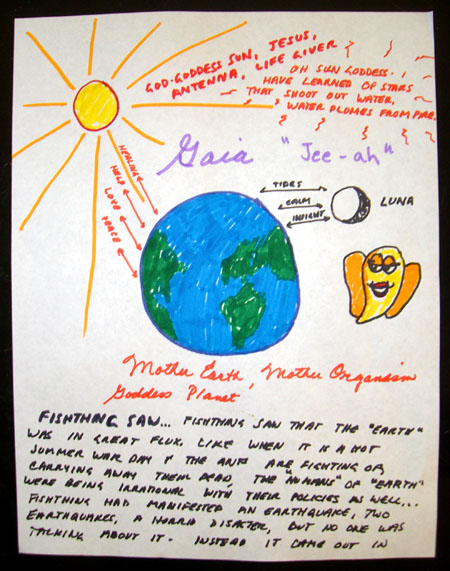 GOD-GODDESS SUN, JESUS,
ANTENNA, LIFE GIVER
OH SUN GODDESS. I
HAVE LEARNED OF STARS
THAT SHOOT OUT WATER,
WATER PLUMES FROM FIRE.
Gaia "Jee-ah"
HEALING
HELP
LOVE
PEACE
TIDES
CALM
INSIGHT
LUNA
Mother Earth, Mother Organism
Goddess Planet
FISHTHNG SAW... FISHTHNG SAW THAT THE "EARTH"
WAS IN GREAT FLUX. LIKE WHEN IT IS A HOT
SUMMER WAR DAY & THE ANTS ARE FIGHTING OR
CARRYING AWAY THEIR DEAD, THE "HUMANS" OF "EARTH"
WERE BEING IRRATIONAL WITH THEIR POLICIES AS WELL...
FISHTHNG HAD MANIFESTED AN EARTHQUAKE, TWO
EARTHQUAKES, A HORRID DISASTER, BUT NO ONE WAS
TALKING ABOUT IT. INSTEAD IT CAME OUT IN